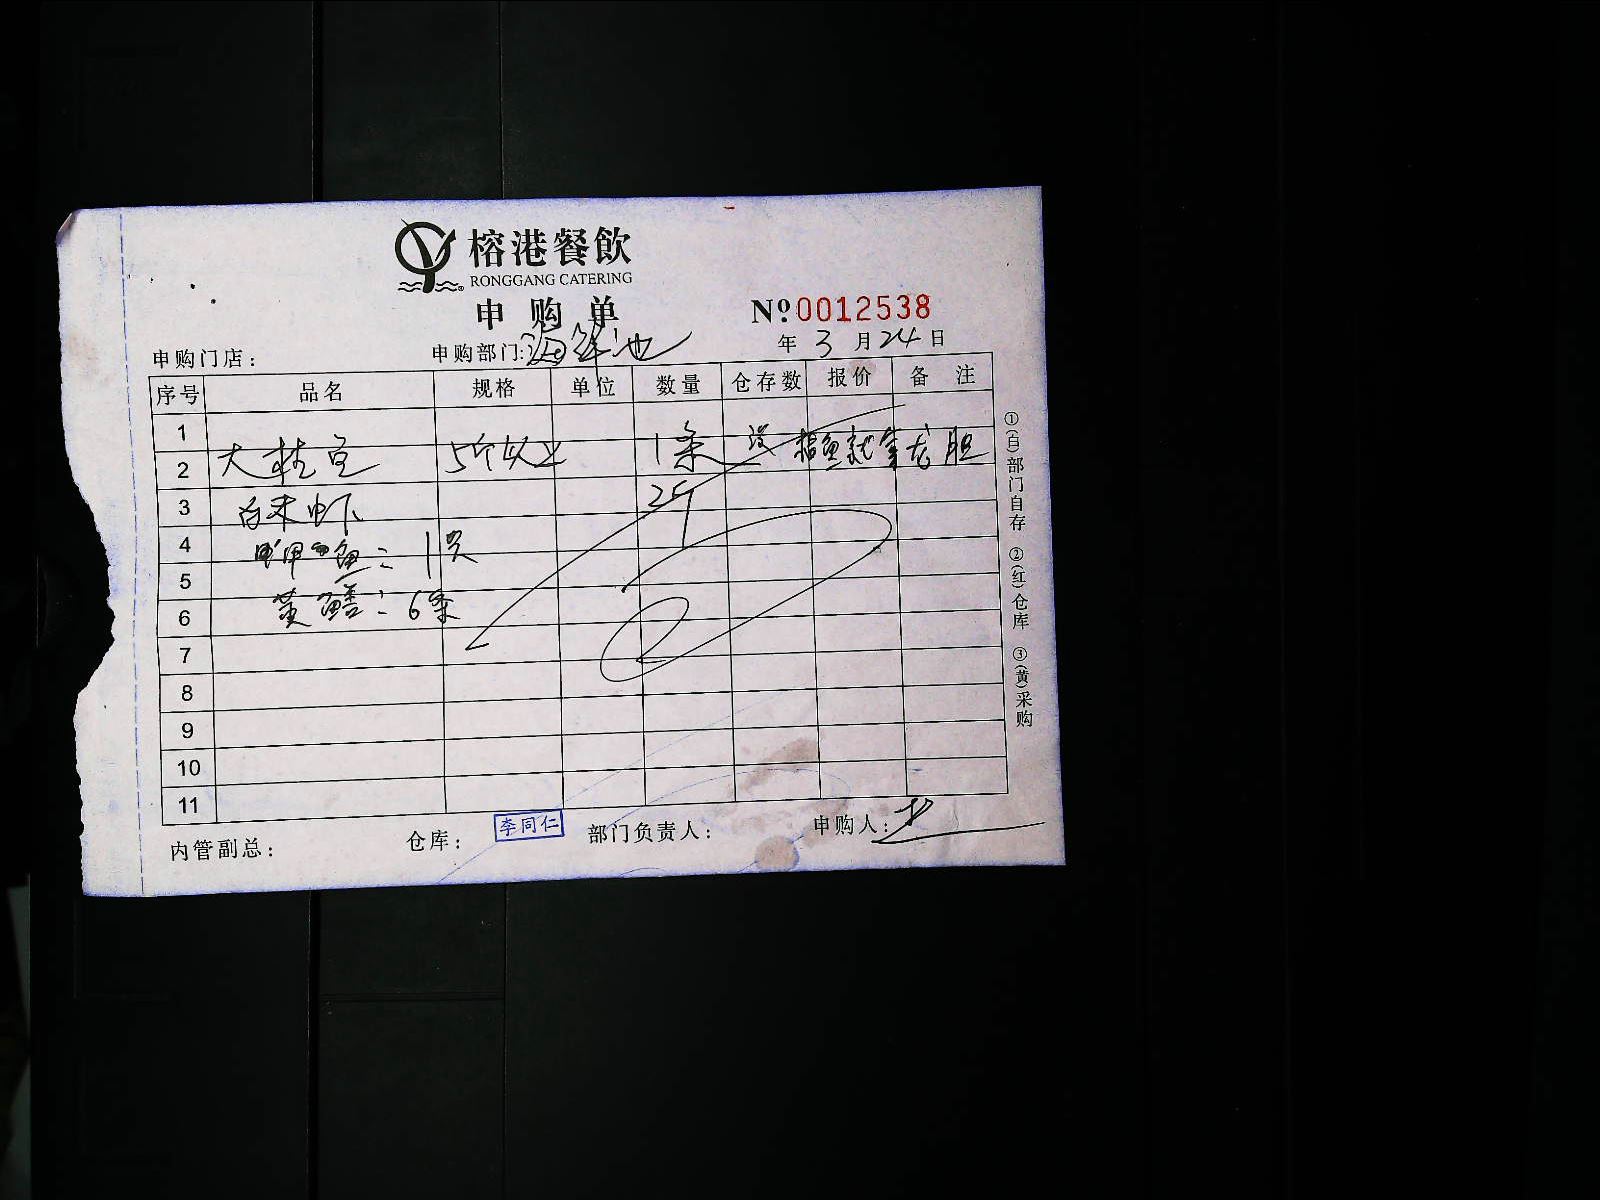 榕港餐飲
RONGGANG CATERING
申购单
Nº 0012538
年 3 月 24 日
申购门店: 申购部门: 海鲜池
序号 品名 规格 单位 数量 仓存数 报价 备注
1
2 大桂鱼 5斤以上 1条 没桂鱼就拿龙胆
3 白米虾 2斤
4 甲鱼: 1只
5
6 黄鳝: 6条
7
8
9
10
11
内管副总: 仓库: 李同仁 部门负责人: 申购人:
①(白)部门自存 ②(红)仓库 ③(黄)采购